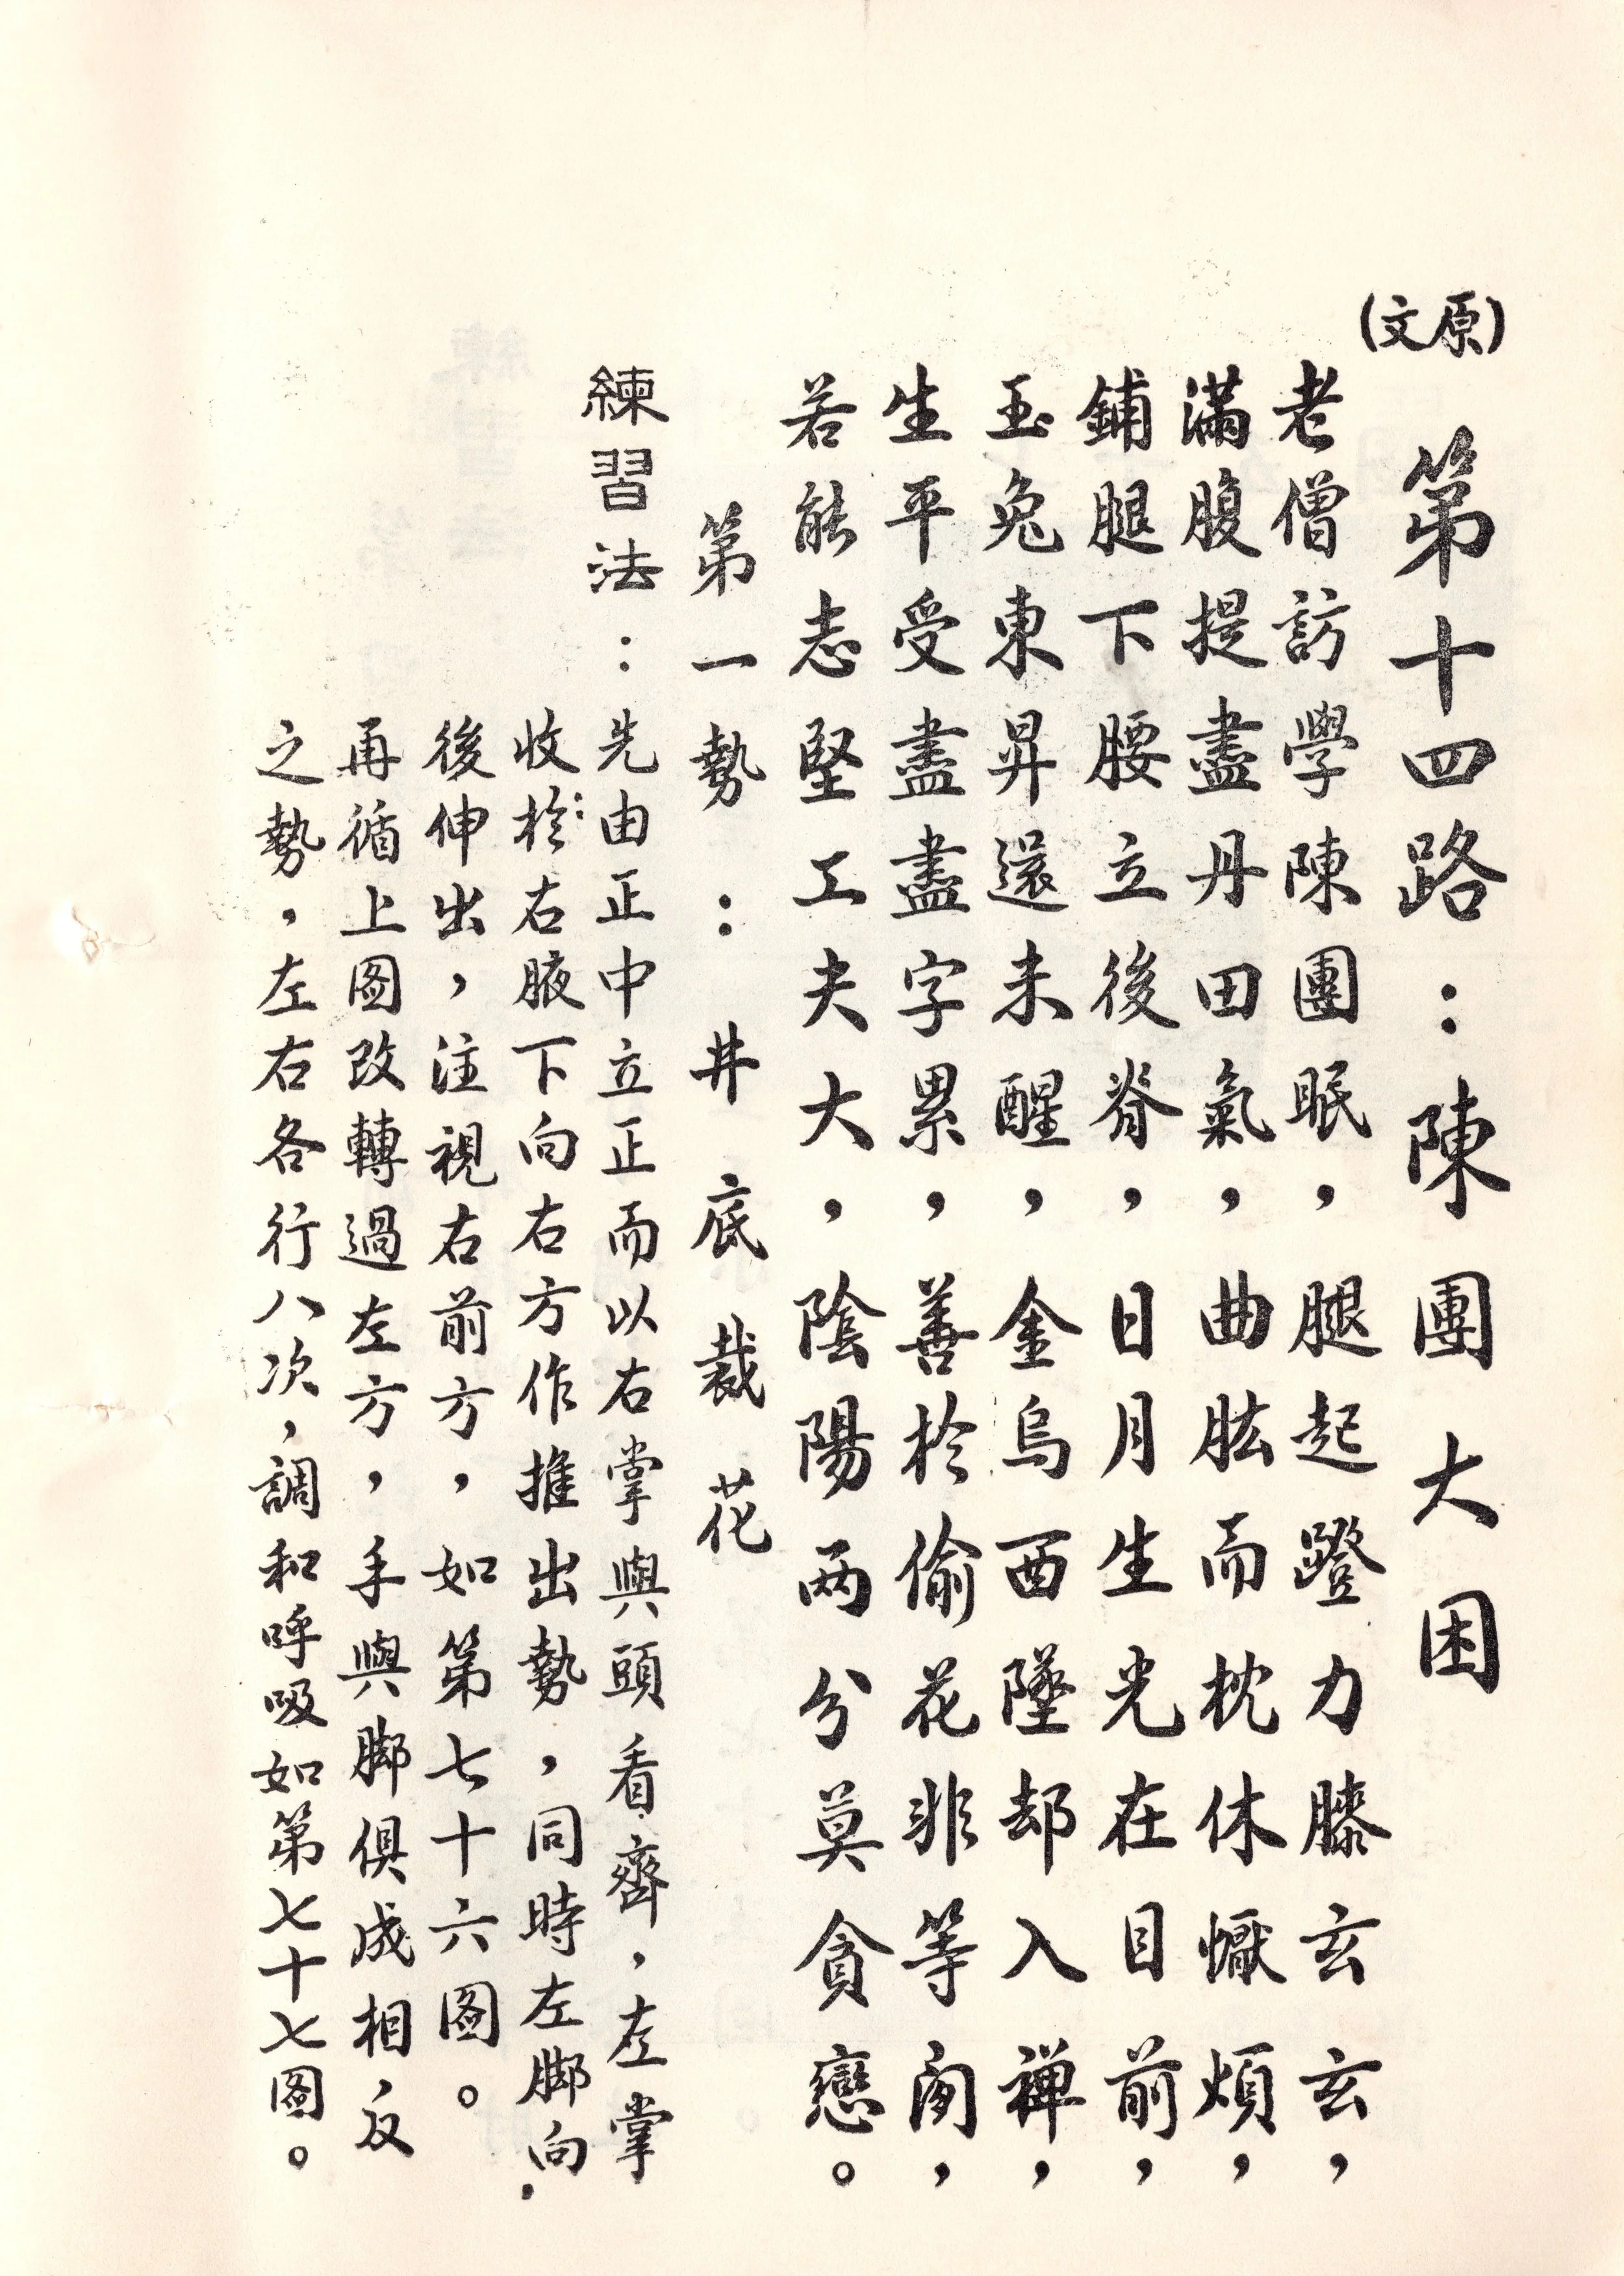 (原文)
第十四路：陳團大困
老僧訪學陳團眠，腿起蹬力膝玄玄，
滿腹提盡丹田氣，曲肱而枕休懨煩，
鋪腿下腰立後脊，日月生光在目前，
玉兔東昇還未醒，金烏西墜却入禅，
生平受盡盡字累，善於偷花非等閑，
若能志堅工夫大，陰陽两分莫貪戀。
第一勢：井底裁花
練習法：先由正中立正而以右掌與頭看齊，左掌
收於右腋下向右方作推出勢，同時左脚向
後伸出，注視右前方，如第七十六图。
再循上图改轉過左方，手與脚俱成相反
之勢，左右各行八次，調和呼吸如第七十七图。